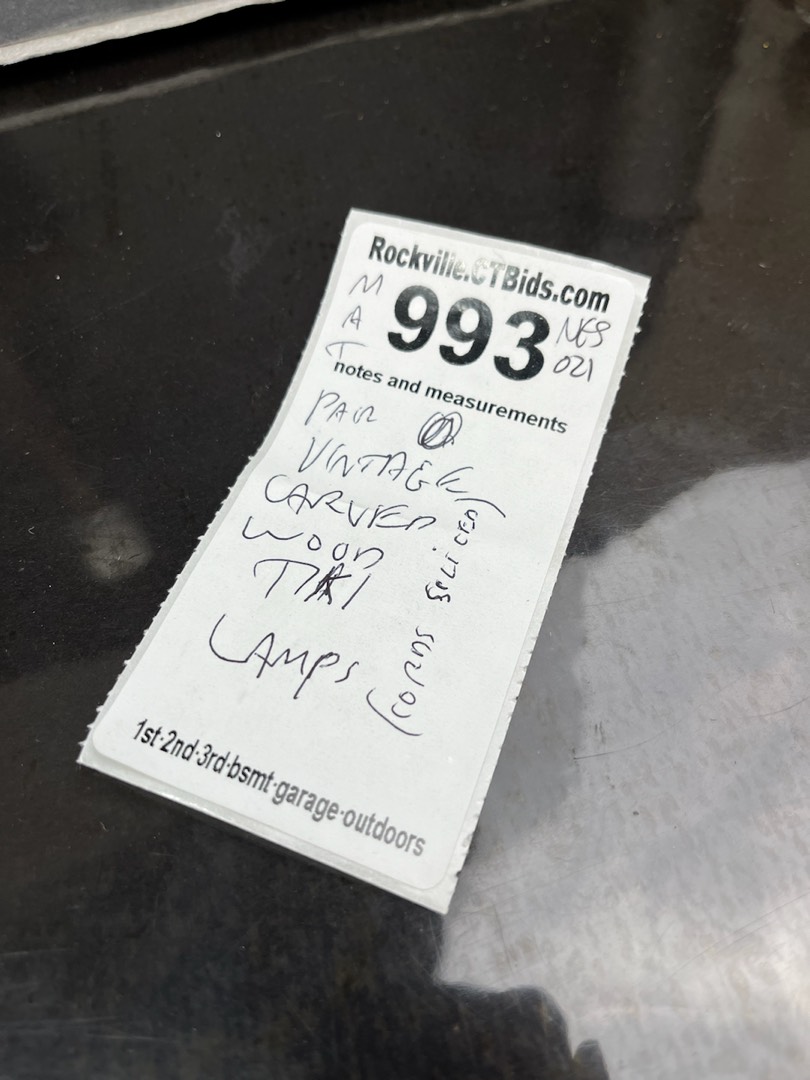 Rockville.CTBids.com
MAT
993
NES
021
notes and measurements
PAIR
VINTAGE
CARVED
WOOD
TIKI
LAMPS
(CORDS SPLICED)
1st·2nd·3rd·bsmt·garage·outdoors